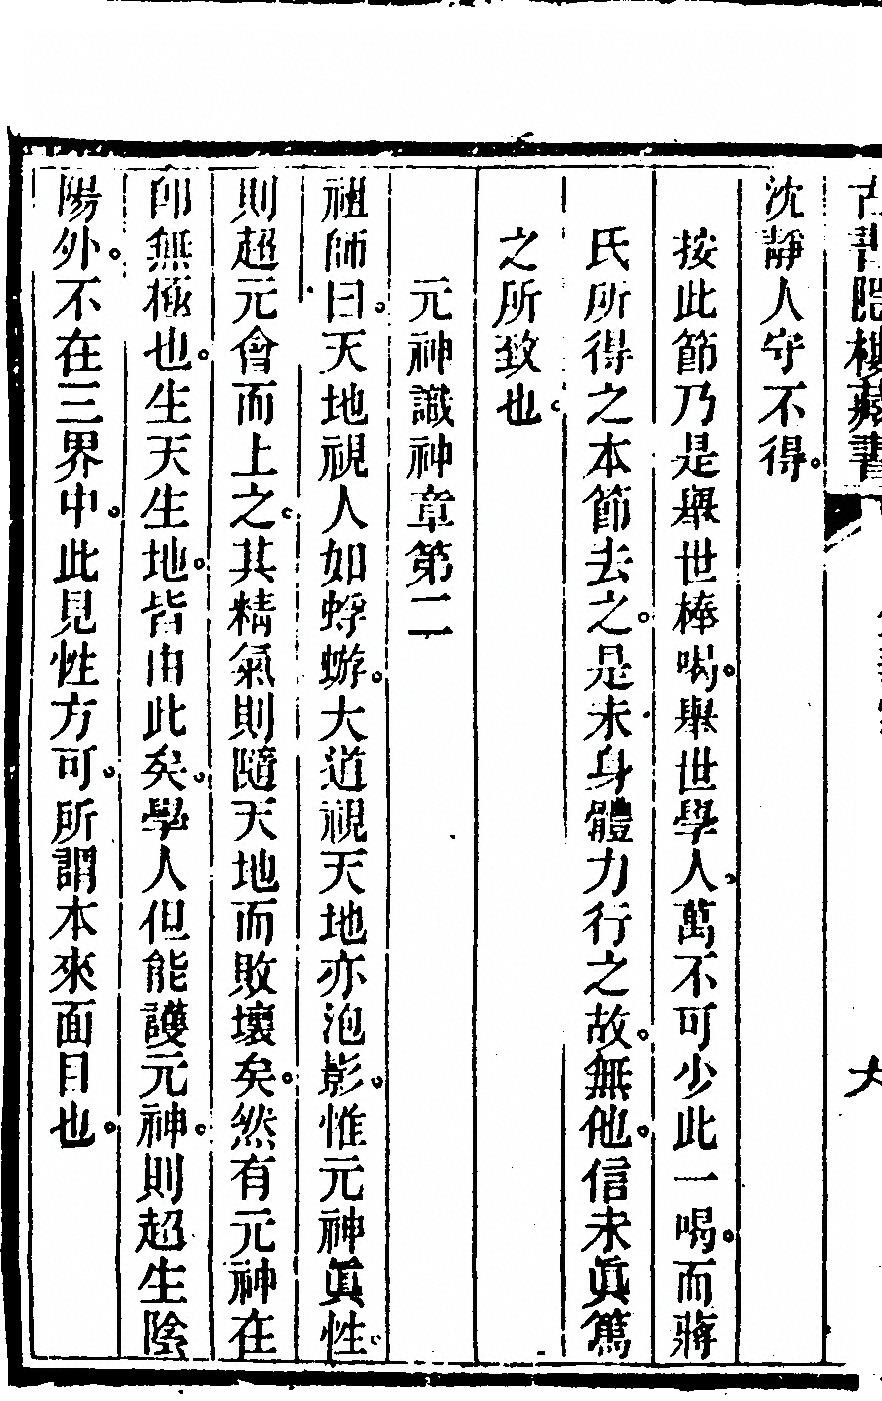 古書隱樓藏書
沈靜人守不得。
按此節乃是舉世棒喝。舉世學人。萬不可少此一喝。而蔣
氏所得之本節去之。是未身體力行之故。無他。信未眞篤
之所致也。
元神識神章第二
祖師曰。天地視人如蜉蝣。大道視天地亦泡影。惟元神眞性。
則超元會而上之。其精氣則隨天地而敗壞矣。然有元神在
卽無極也。生天生地。皆由此矣。學人但能護元神。則超生陰
陽外。不在三界中。此見性方可。所謂本來面目也。